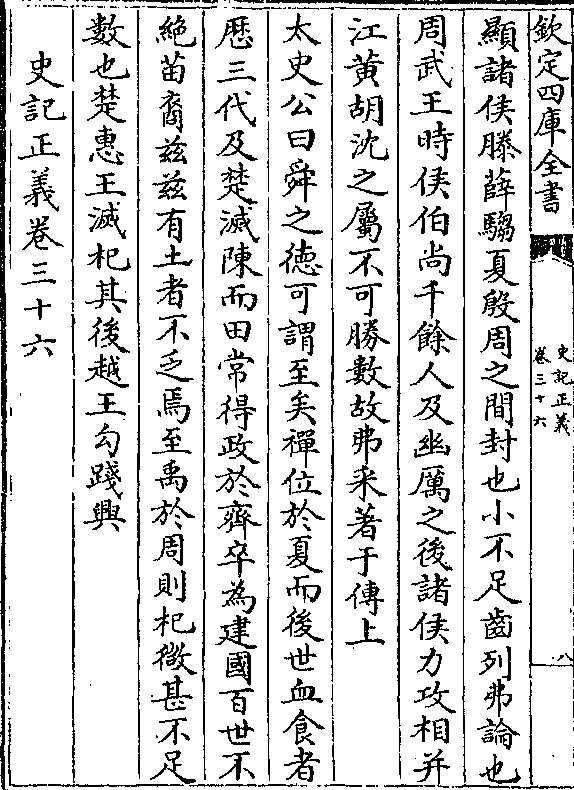 欽定四庫全書
史記正義
卷三十六
八
顯諸侯滕薛騶夏殷周之間封也小不足齒列弗論也
周武王時侯伯尚千餘人及幽厲之後諸侯力攻相并
江黄胡沈之屬不可勝數故弗采著于傳上
太史公曰舜之徳可謂至矣禪位於夏而後世血食者
歴三代及楚滅陳而田常得政於齊卒為建國百世不
絶苗裔兹兹有土者不乏焉至禹於周則杞微甚不足
數也楚惠王滅杞其後越王勾踐興
史記正義卷三十六